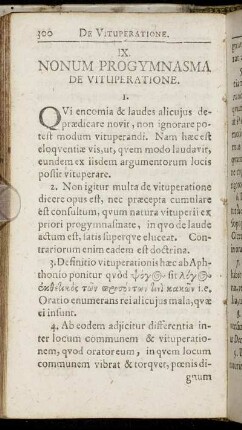 300 DE VITUPERATIONE.
IX.
NONUM PROGYMNASMA
DE VITUPERATIONE.
I.
QVi encomia de laudes alicujus de-
prædicare novit, non ignorare po-
test modum vituperandi. Nam hæc est
eloqventiæ vis, ut, qvem modo laudavit,
eundem ex iisdem argumentorum locis
possit vituperare.
2. Non igitur multa de vituperatione
dicere opus est, nec præcepta cumulare
est consultum, qvum natura vituperii ex
priori progymnasmate, in qvo de laude
actum est, satis superqve eluceat. Con-
trariorum enim eadem est doctrina.
3. Definitio vituperationis hæc ab Aph-
thonio ponitur qvòd ψόγος sit λόγος
ἐκθετικὸς τῶν προσόντων τινὶ κακῶν i.e.
Oratio enumerans rei alicujus mala, qvæ
ei insunt.
4. Ab eodem adjicitur differentia in-
ter locum communem & vituperatio-
nem, qvod oratoreum, in qvem locum
communem vibrat & torqvet, pœnis di-
gnum